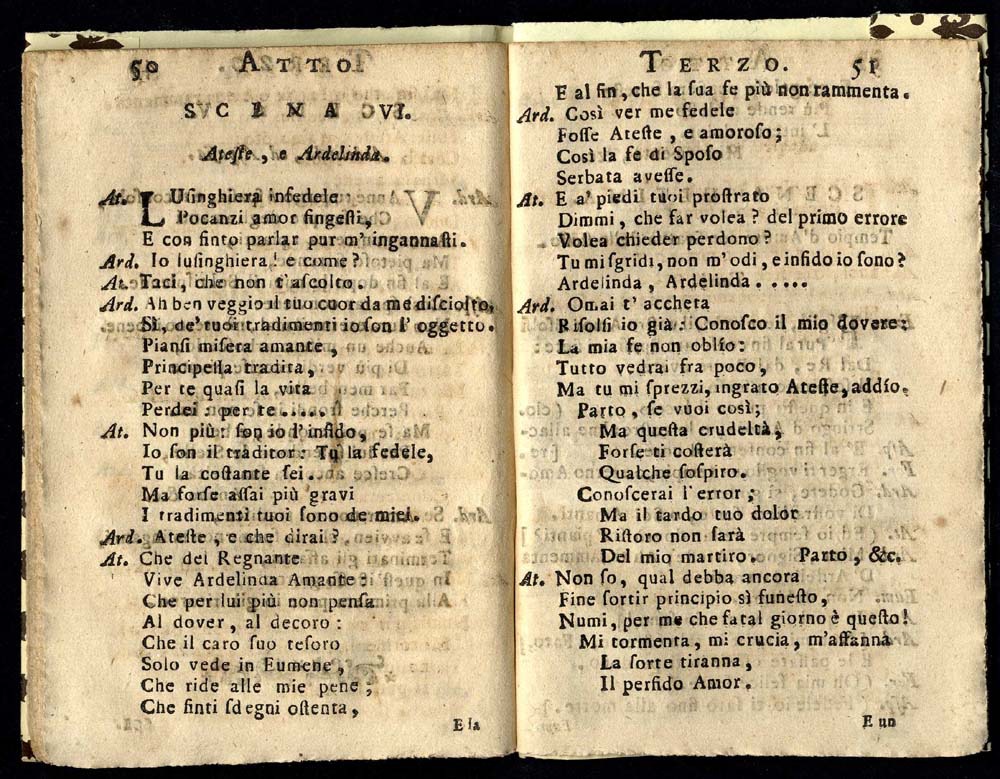 50 ATTO
SCENA VI.
Ateste, e Ardelinda.
At. LUsinghiera infedele:
Pocanzi amor fingesti,
E con finto parlar pur m' ingannasti.
Ard. Io lusinghiera! e come?
At. Taci, che non t'ascolto.
Ard. Ah ben veggio il tuo cuor da me disciolto,
Sì, de' tuoi tradimenti io son l' oggetto.
Piansi misera amante,
Principessa tradita,
Per te quasi la vita
Perdei: per te.....
At. Non più: son io l'infido,
Io son il traditor: Tu la fedele,
Tu la costante sei.
Ma forse assai più gravi
I tradimenti tuoi sono de miei.
Ard. Ateste, e che dirai?
At. Che del Regnante
Vive Ardelinda Amante:
Che per lui più non pensa
Al dover, al decoro:
Che il caro suo tesoro
Solo vede in Eumene,
Che ride alle mie pene;
Che finti sdegni ostenta,
E la
TERZO. 51
E al fin, che la sua fe più non rammenta.
Ard. Così ver me fedele
Fosse Ateste, e amoroso;
Così la fe di Sposo
Serbata avesse.
At. E a' piedi tuoi prostrato
Dimmi, che far volea? del primo errore
Volea chieder perdono?
Tu mi sgridi, non m'odi, e infido io sono?
Ardelinda, Ardelinda.....
Ard. Omai t' accheta
Risolsi io già: Conosco il mio dovere:
La mia fe non oblìo:
Tutto vedrai fra poco,
Ma tu mi sprezzi, ingrato Ateste, addìo.
Parto, se vuoi così;
Ma questa crudeltà,
Forse ti costerà
Qualche sospiro.
Conoscerai l'error;
Ma il tardo tuo dolor
Ristoro non farà
Del mio martiro. Parto, &c.
At. Non so, qual debba ancora
Fine sortir principio sì funesto,
Numi, per me che fatal giorno è questo!
Mi tormenta, mi crucia, m'affanna
La sorte tiranna,
Il perfido Amor.
E un